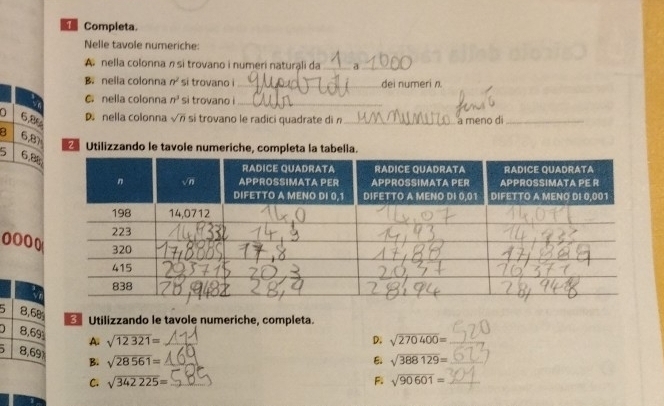 1 Completa.
Nelle tavole numeriche:
A. nella colonna n si trovano i numeri naturali da 1 a 1000
B. nella colonna n² si trovano i quadrati dei numeri n.
C. nella colonna n³ si trovano i cubi
D. nella colonna √n si trovano le radici quadrate di n un numero a meno di
2 Utilizzando le tavole numeriche, completa la tabella.
n √n RADICE QUADRATA APPROSSIMATA PER DIFETTO A MENO DI 0,1 RADICE QUADRATA APPROSSIMATA PER DIFETTO A MENO DI 0,01 RADICE QUADRATA APPROSSIMATA PER DIFETTO A MENO DI 0,001
198 14,0712 14,0 14,07 14,071
223 14,9332 14,9 14,93 14,933
320 17,8885 17,8 17,88 17,888
415 20,3715 20,3 20,37 20,371
838 28,9482 28,9 28,94 28,948
3 Utilizzando le tavole numeriche, completa.
A. √12 321 = 111
B. √28 561 = 169
C. √342 225 = 585
D. √270 400 = 520
E. √388 129 = 623
F. √90 601 = 301